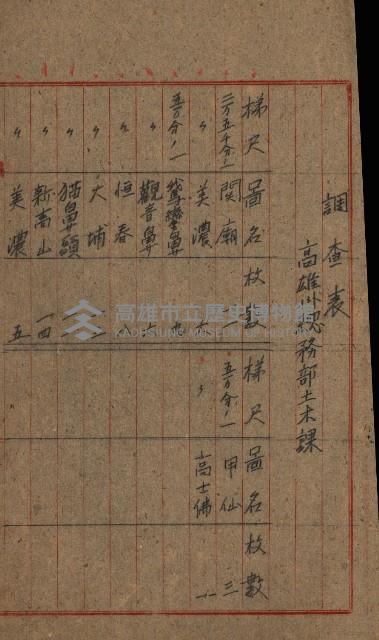 調查表
高雄州總務部土木課
梯尺 圖名 枚數 梯尺 圖名 枚數
二万五千分ノ一 関廟 五万分ノ一 甲仙 三
〃 美濃 〃 高士佛 一
五万分ノ一 鵞鑾鼻
〃 觀音鼻
〃 恒春
〃 大埔
〃 猫鼻頭
〃 新高山 一四
〃 美濃 五
高雄市立歷史博物館
KAOHSIUNG MUSEUM OF HISTORY